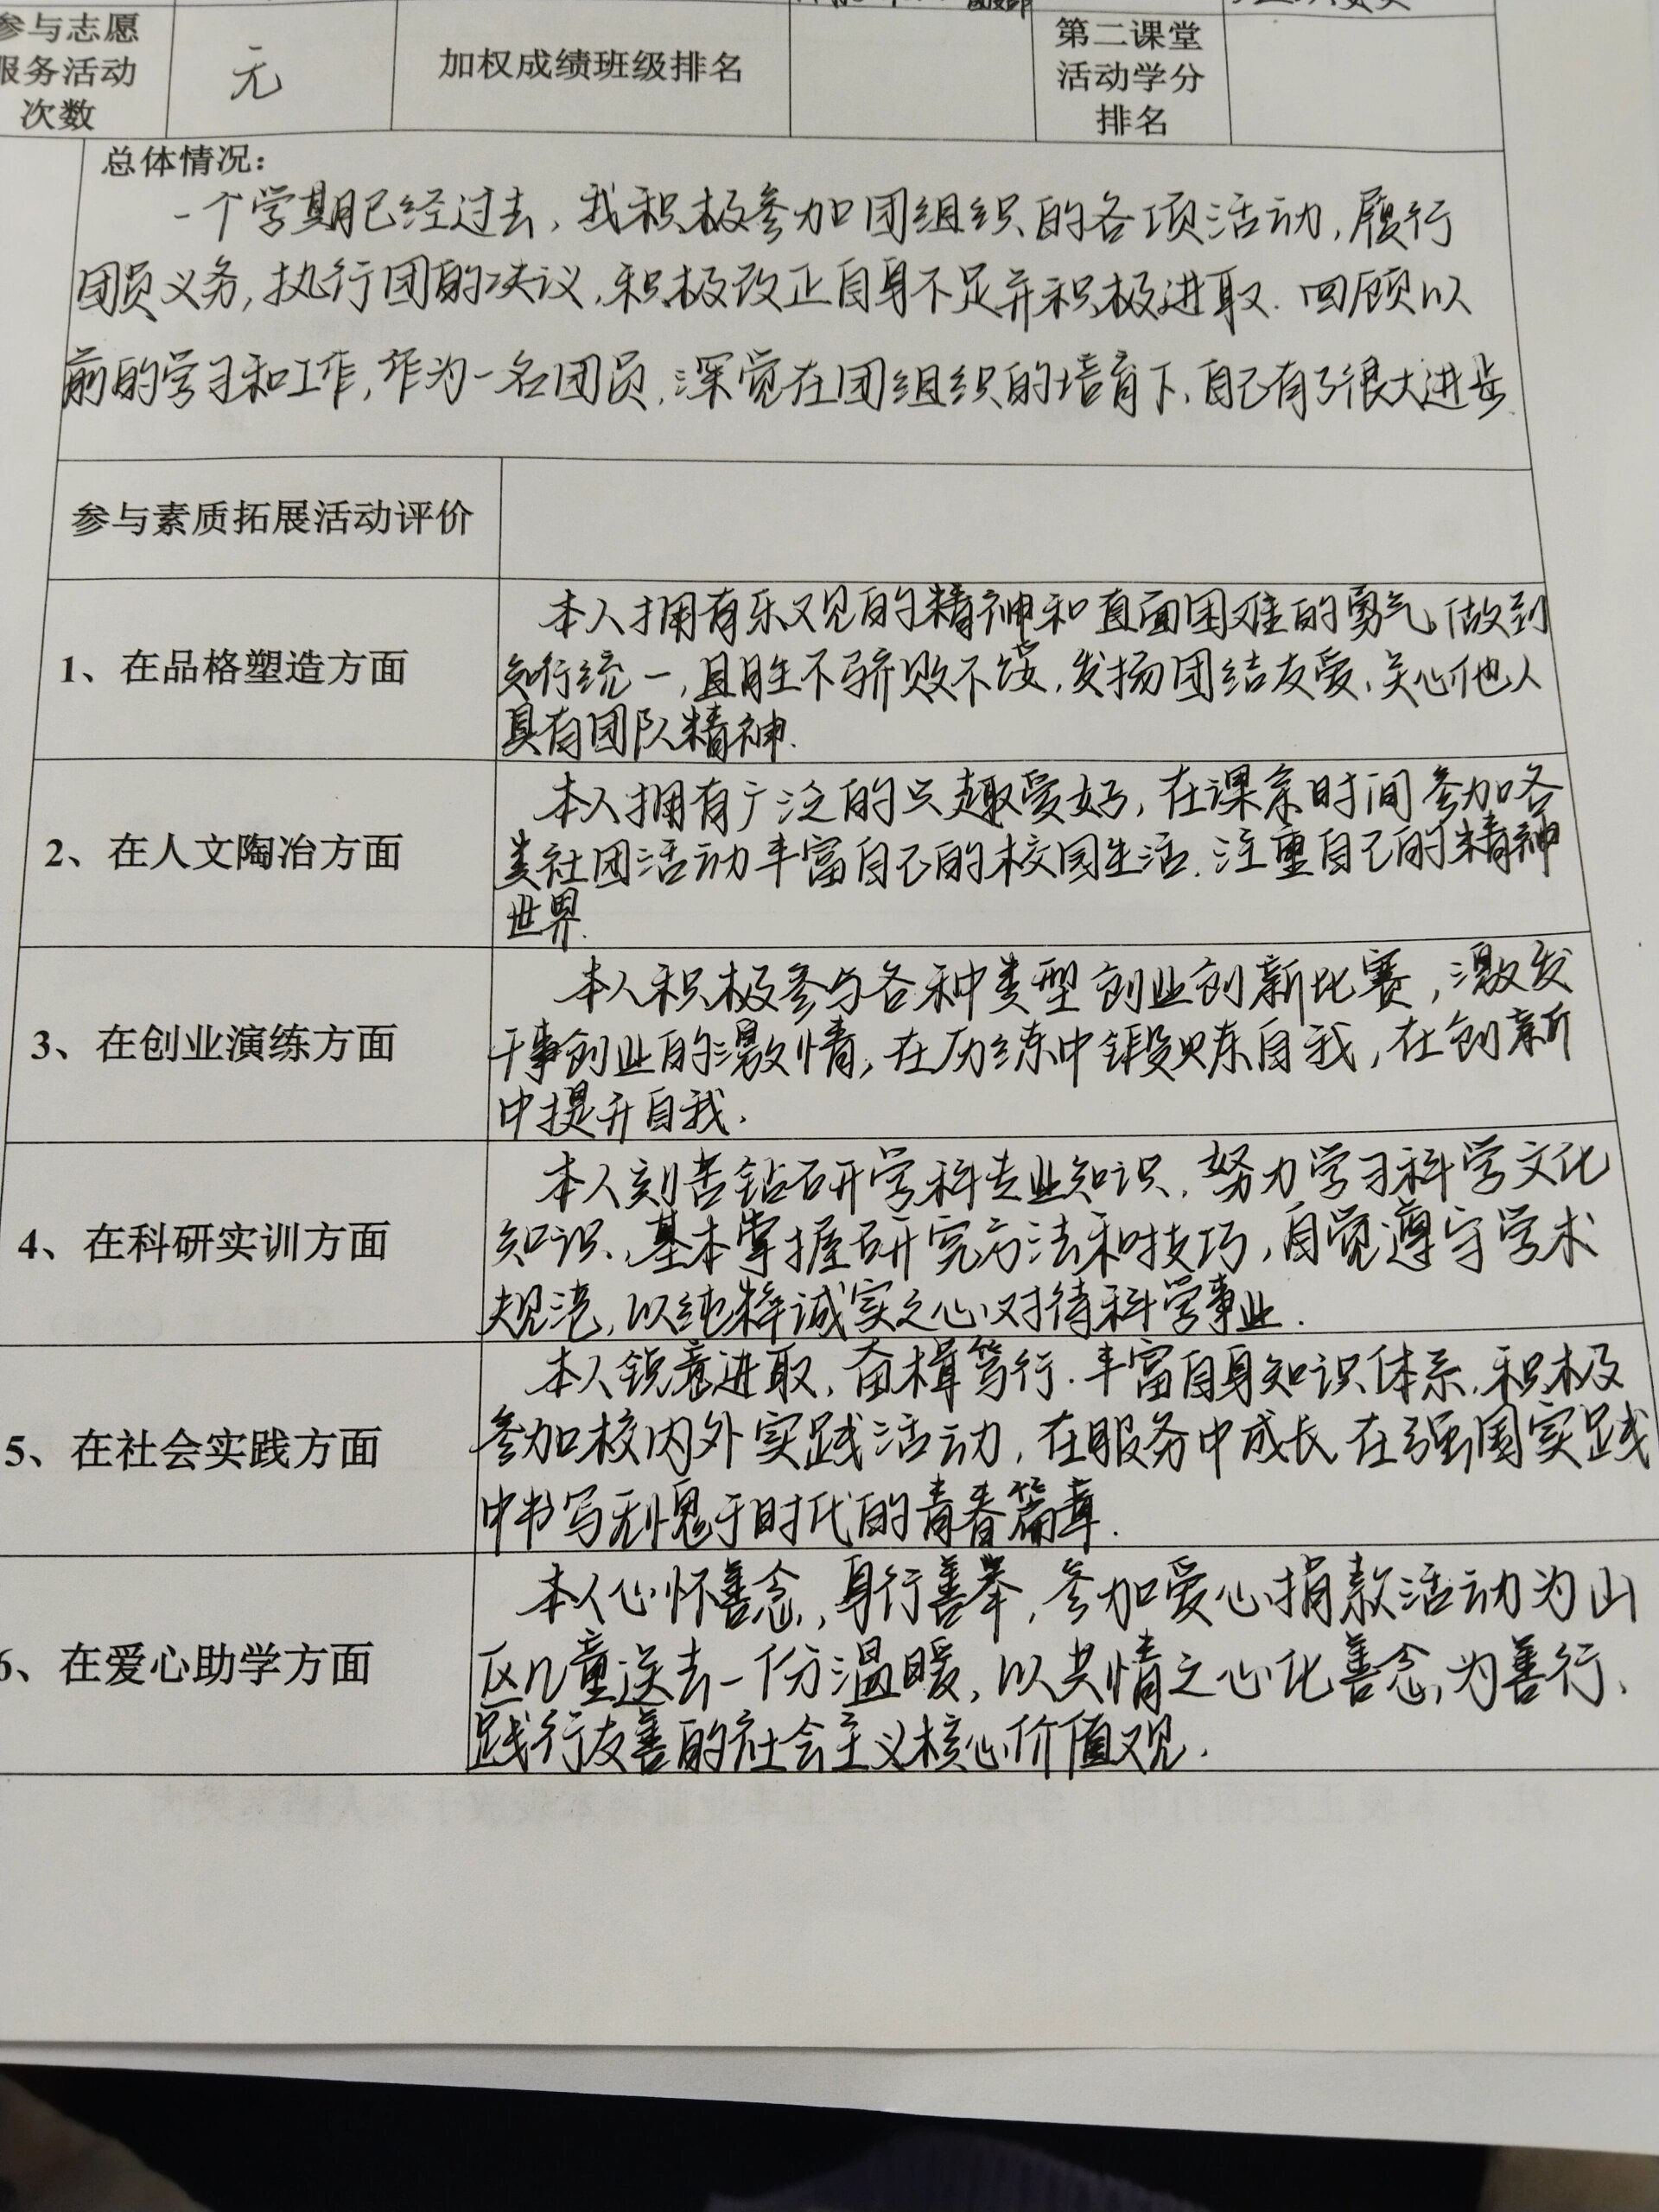 参与志愿
服务活动
次数
无
加权成绩班级排名
第二课堂
活动学分
排名
总体情况：
一个学期已经过去，我积极参加团组织的各项活动，履行
团员义务，执行团的决议，积极改正自身不足并积极进取．回顾以
前的学习和工作，作为一名团员，深觉在团组织的培育下，自己有了很大进步．
参与素质拓展活动评价
1、在品格塑造方面
本人拥有乐观的精神和直面困难的勇气，做到
知行统一，且胜不骄败不馁，发扬团结友爱，关心他人
具有团队精神．
2、在人文陶冶方面
本人拥有广泛的兴趣爱好，在课余时间参加各
类社团活动丰富自己的校园生活．注重自己的精神
世界．
3、在创业演练方面
本人积极参与各种类型创业创新比赛，激发
干事创业的激情，在历练中锻炼自我，在创新
中提升自我．
4、在科研实训方面
本人刻苦钻研学科专业知识，努力学习科学文化
知识，基本掌握研究方法和技巧，自觉遵守学术
规范，以纯粹诚实之心对待科学事业．
5、在社会实践方面
本人锐意进取，奋楫笃行．丰富自身知识体系，积极
参加校内外实践活动，在服务中成长 在强国实践
中书写无愧于时代的青春篇章．
6、在爱心助学方面
本人心怀善念，身行善举，参加爱心捐款活动为山
区儿童送去一份温暖，以共情之心化善念，为善行、
践行友善的社会主义核心价值观．